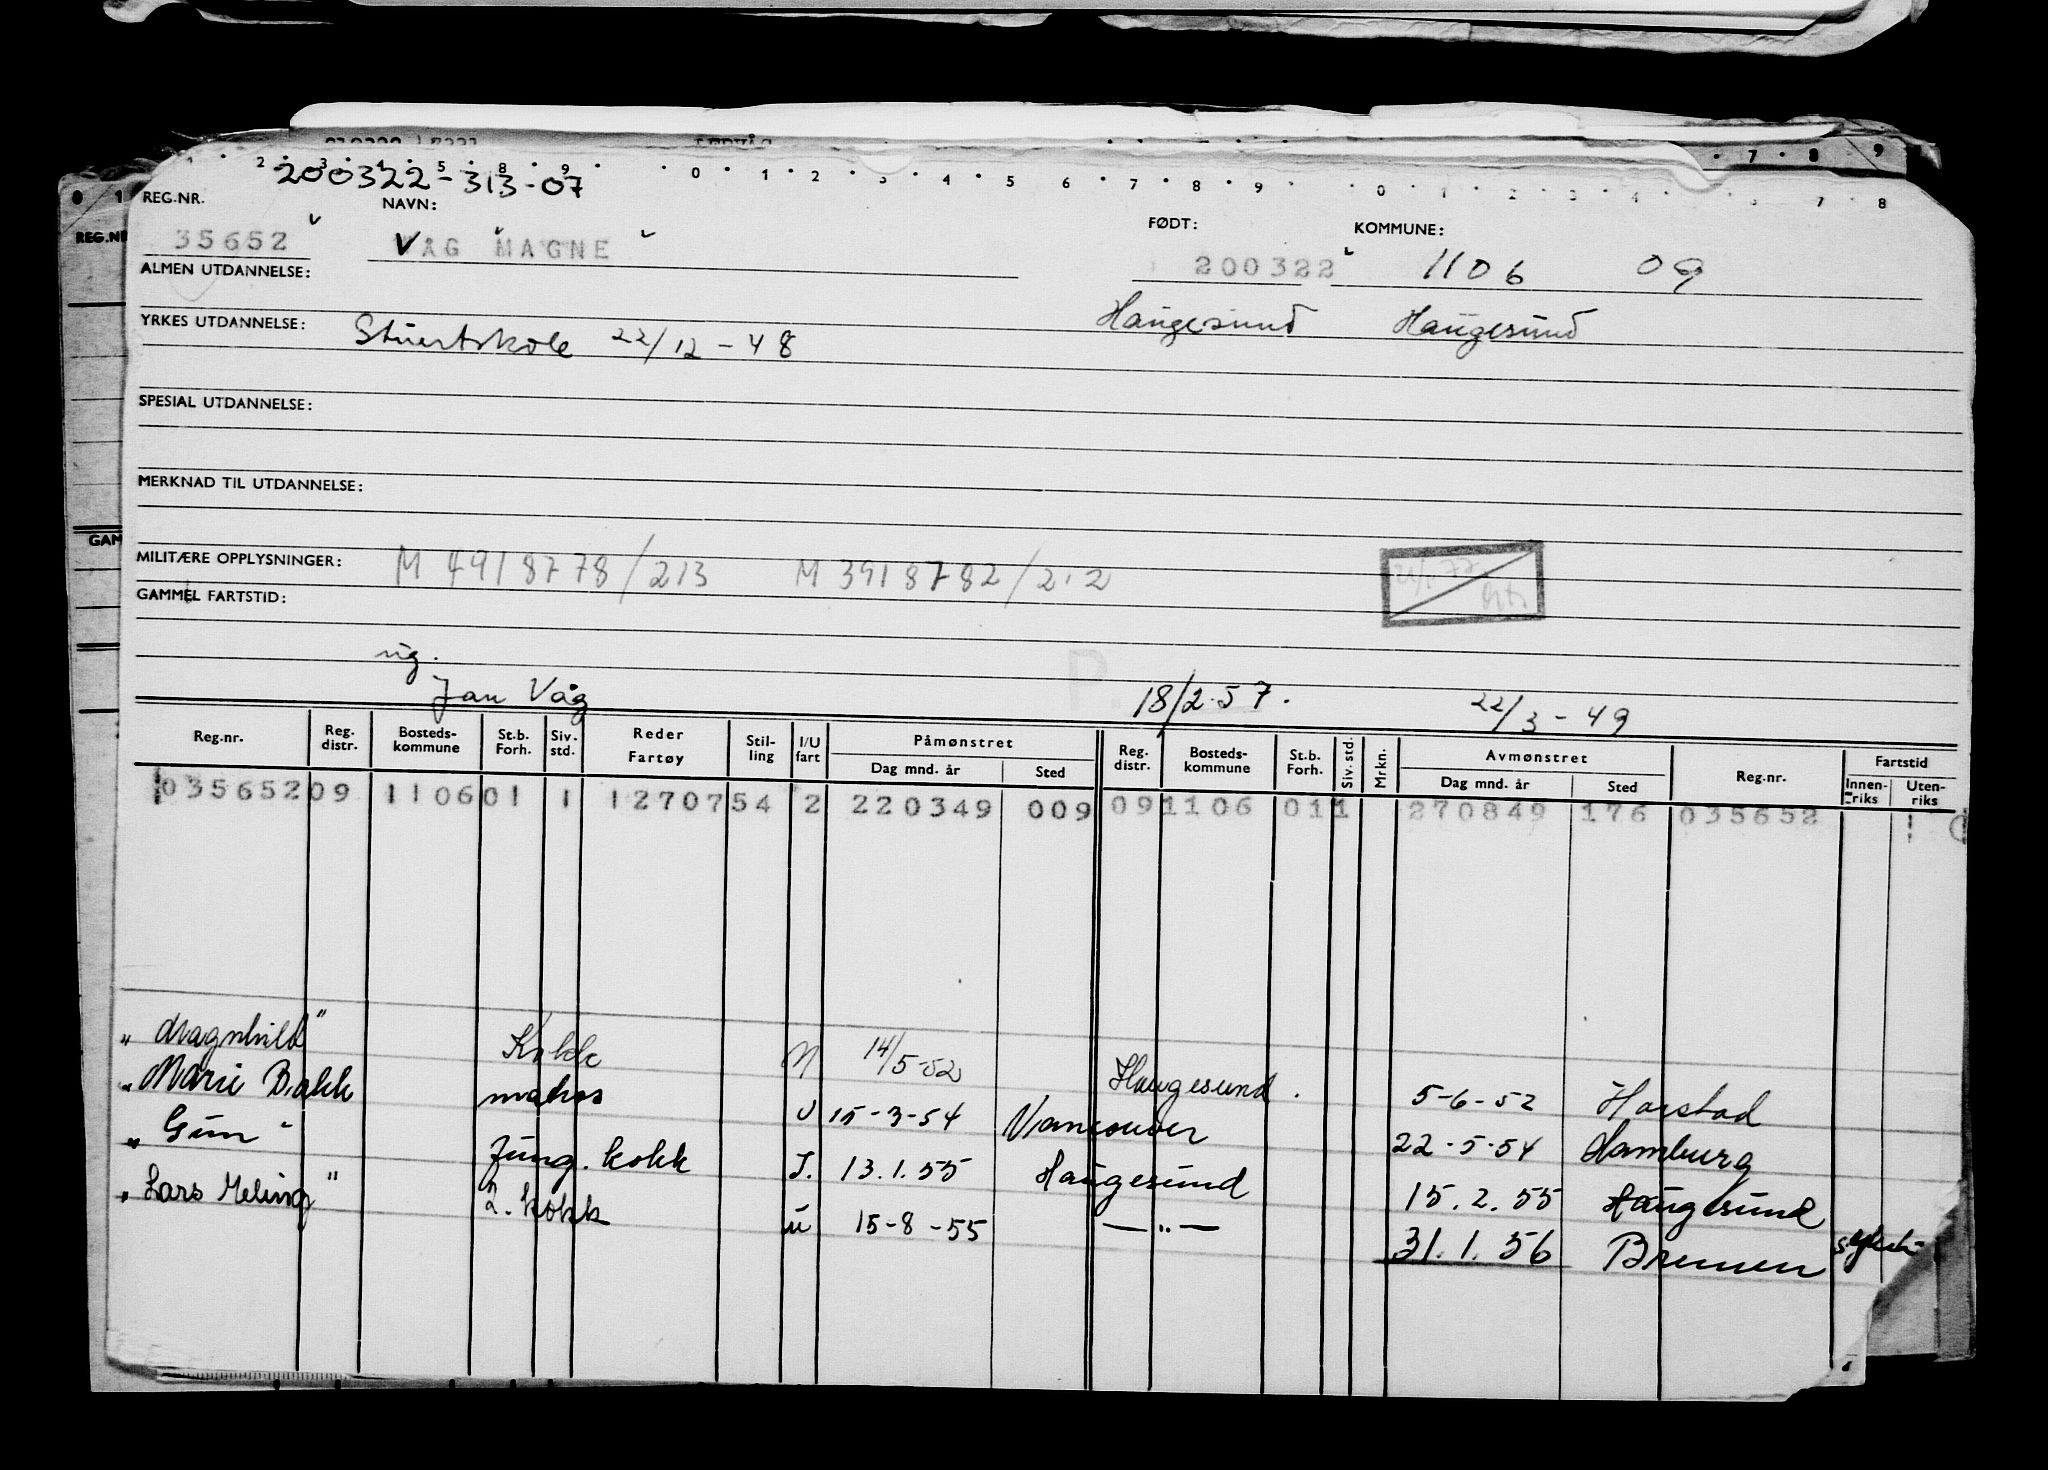 200322-313-07
REG.NR. NAVN: FØDT: KOMMUNE:
35652 VÅG MAGNE 200322 1106 09
ALMEN UTDANNELSE:
Haugesund Haugesund
YRKES UTDANNELSE: Stuertskole 22/12-48
SPESIAL UTDANNELSE:
MERKNAD TIL UTDANNELSE:
MILITÆRE OPPLYSNINGER: M 4918778/213 M 3918782/212
GAMMEL FARTSTID:
Jan Våg 18/2.57. 22/3-49
Reg.nr. Reg. distr. Bosteds-kommune St.b. Forh. Siv. std. Reder Fartøy Stil-ling I/U fart Påmønstret Dag mnd. år Sted Reg. distr. Bosteds-kommune St.b. Forh. Siv. std. Mrkn. Avmønstret Dag mnd. år Sted Reg.nr. Fartstid Innen-riks Uten-riks
035652 09 1106 01 1 1270754 2 220349 009 09 1106 01 1 270849 176 035652
"Magnhild" Kokk N 14/5-52 Haugesund. 5-6-52 Harstad
"Marie Bakk matros U 15-3-54 Vancouver 22-5-54 Hamburg
"Gun" Jung.kokk I. 13.1.55 Haugesund 15.2.55 Haugesund
"Lars Meling" 2.kokk u 15-8-55 —"— 31.1.56 Bremen